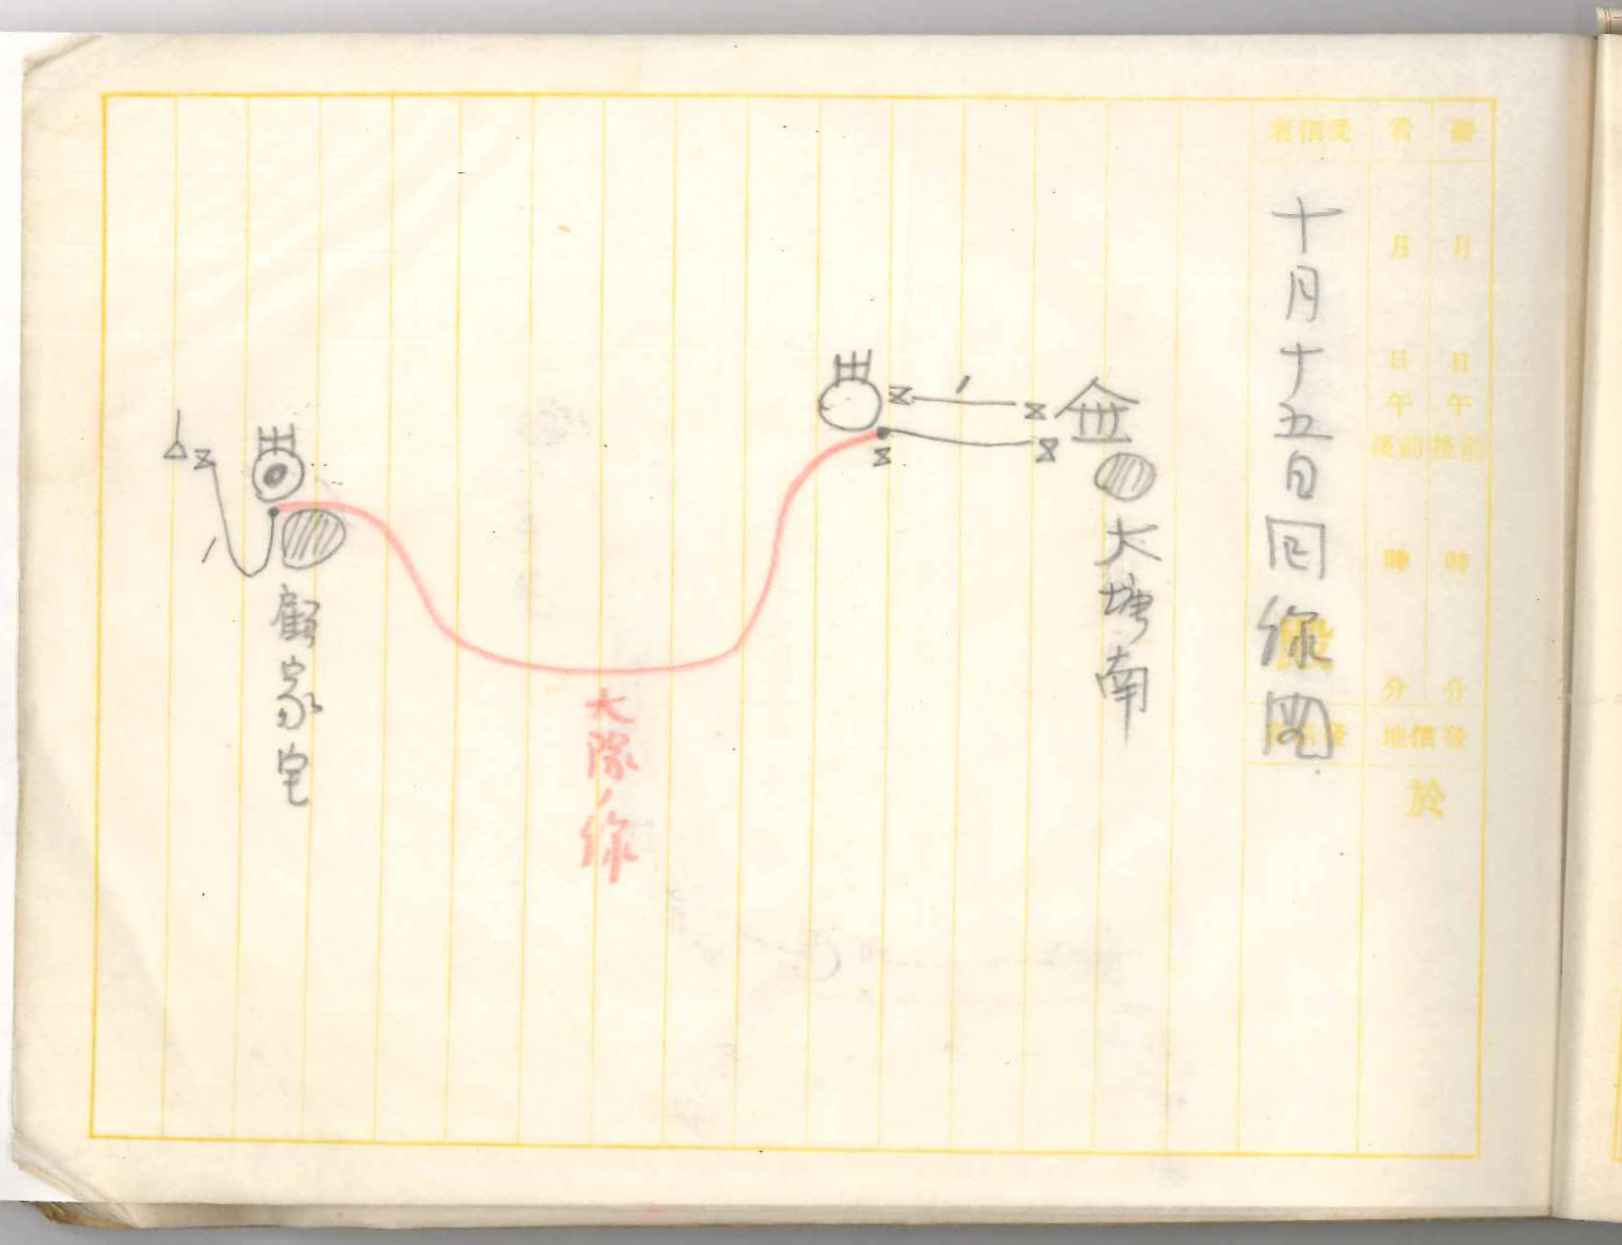 發 着 受信者
月 月
日 日
午 午
前後 前後
時 時
分 分
發信地
於
十月十五日回線図
大塘南
大隊ノ線
顧家宅